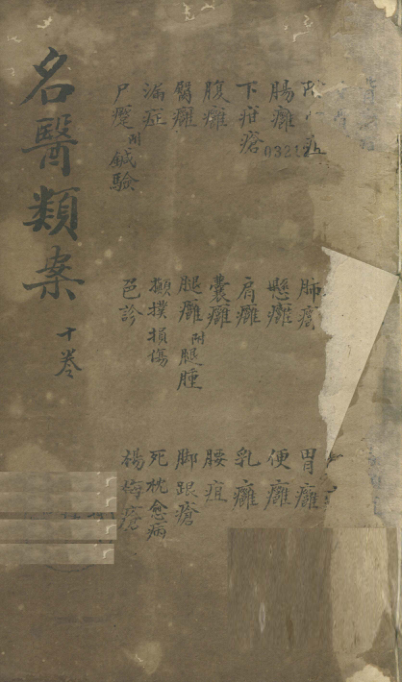 肺癰
胃癰
腸癰
懸癰
便癰
下疳瘡
肩癰
乳癰
腹癰
囊癰
腰疽
臀癰
腿癰附腿腫
脚跟瘡
漏症
攧撲損傷
死枕愈病
尸蹷附鍼驗
色診
楊梅瘡
名醫類案
十卷